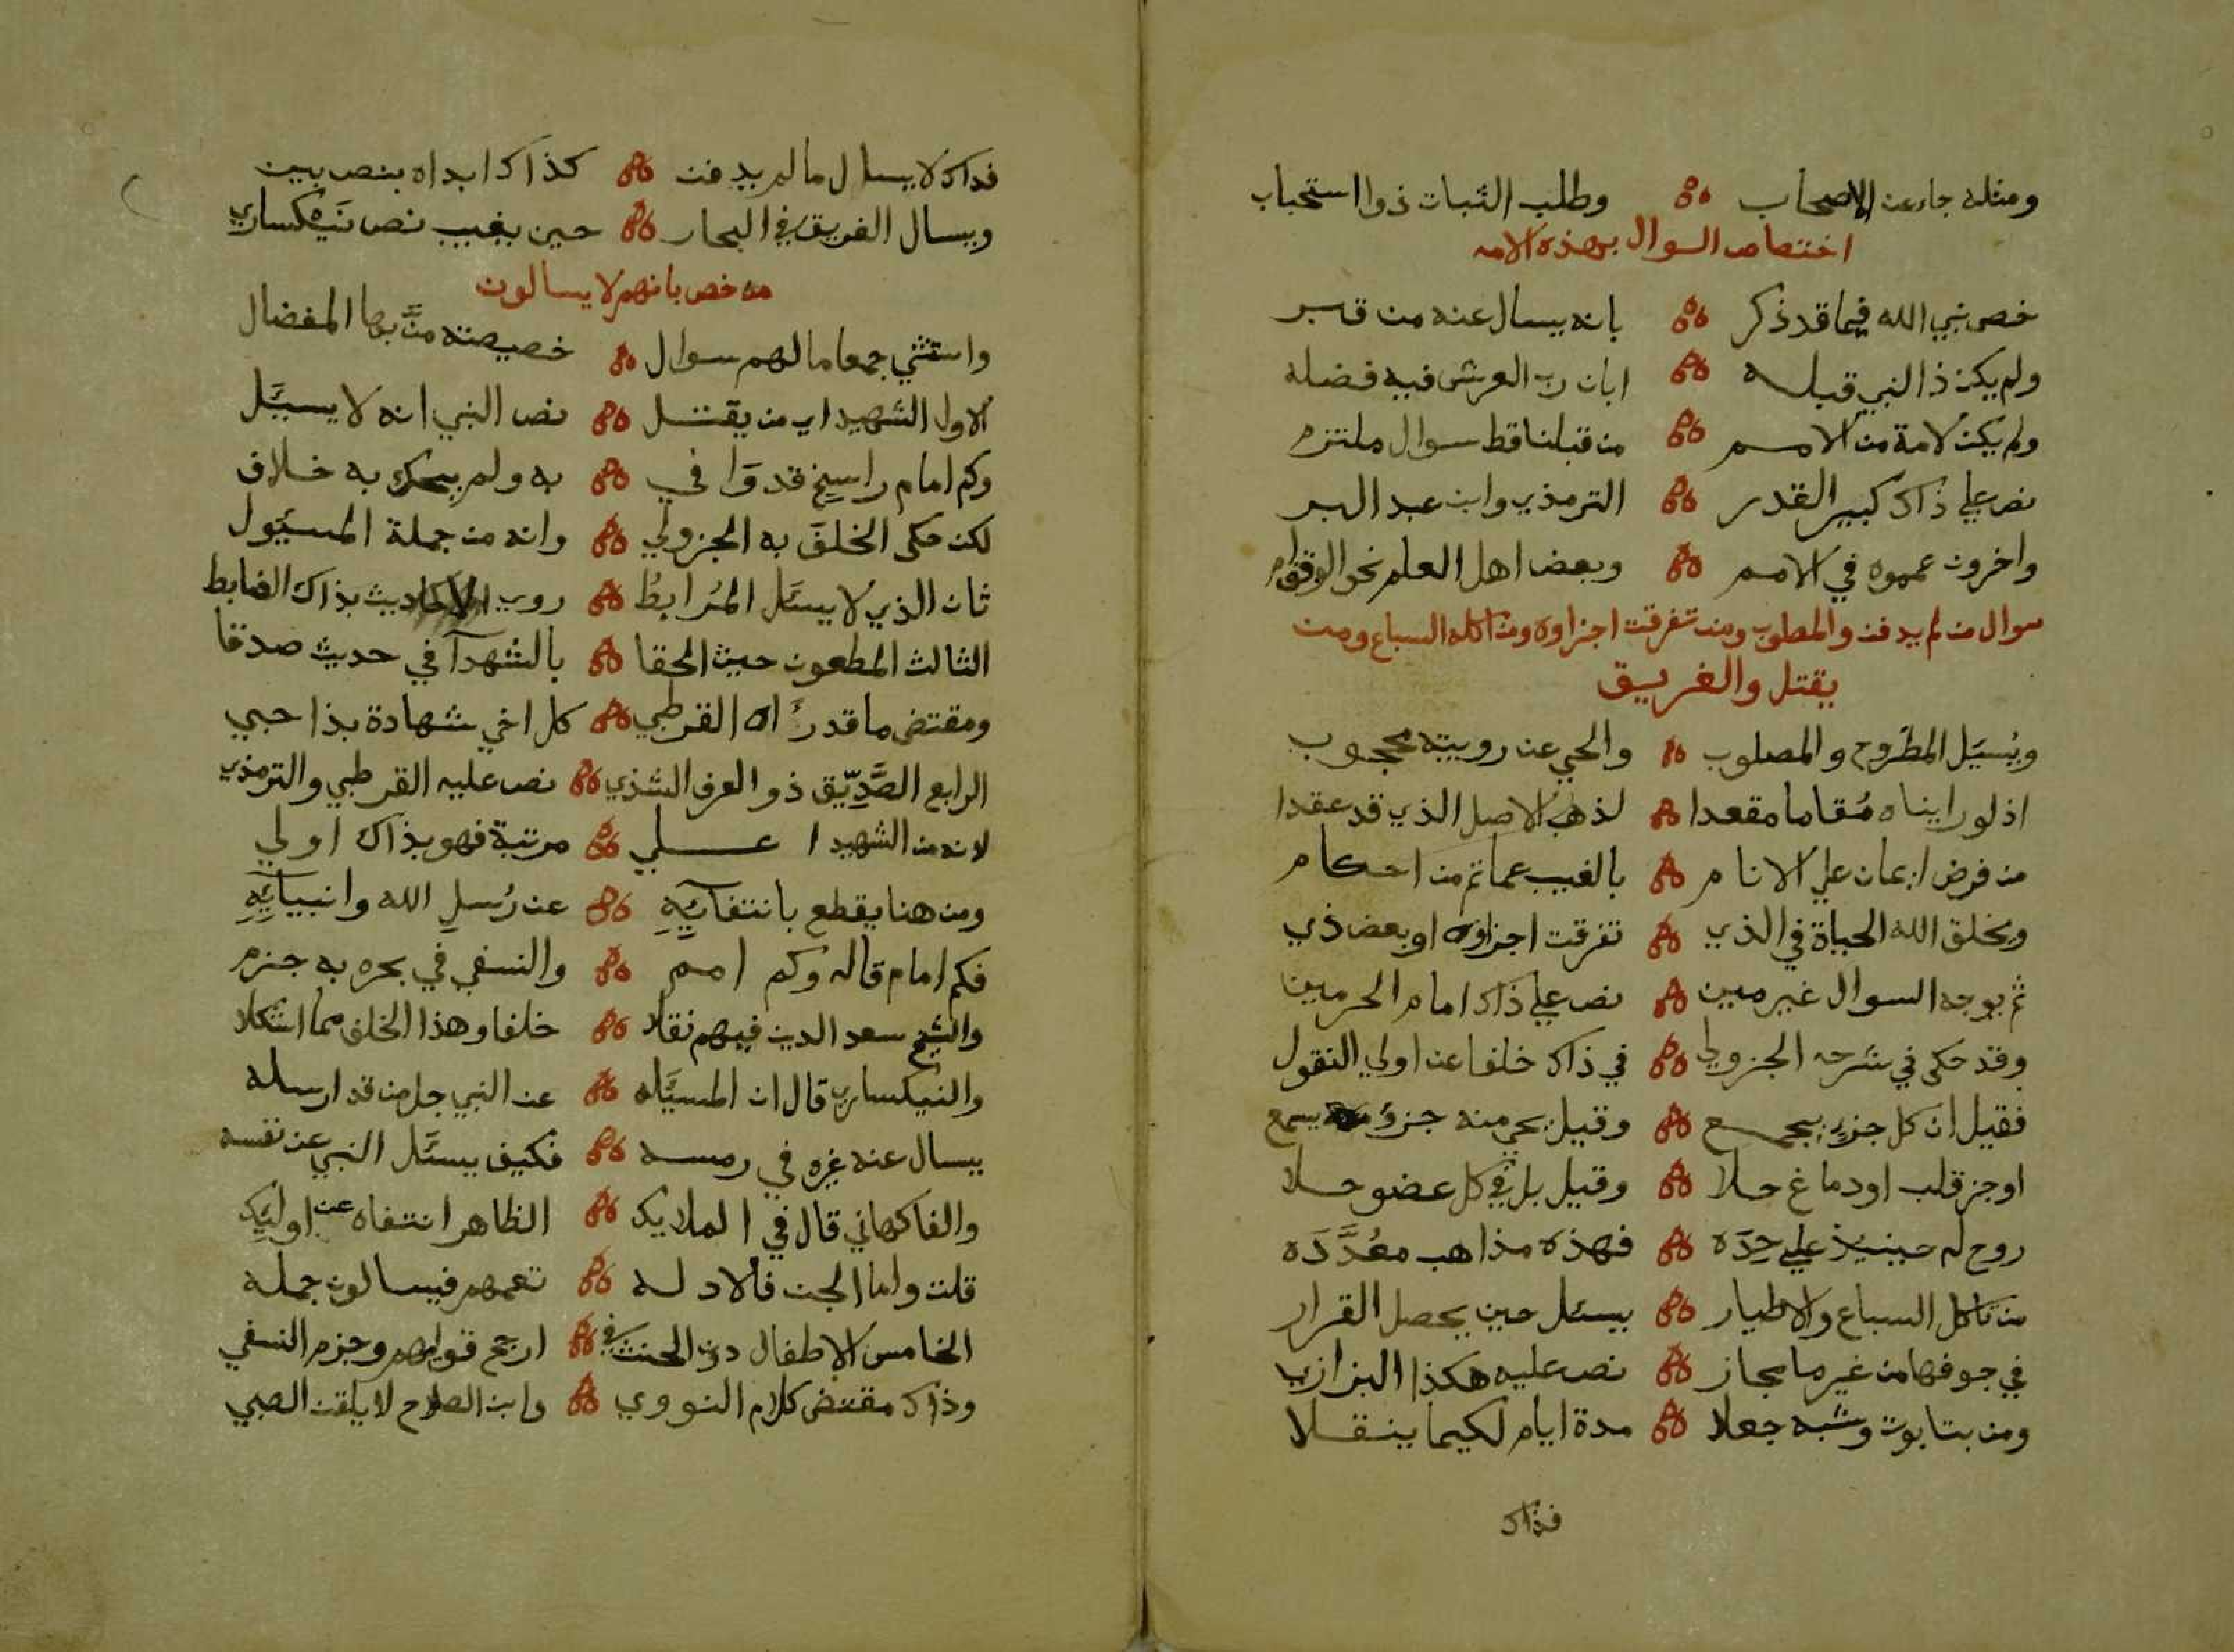 ومثله جاء عن الاصحاب وطلب الثبات ذو استحباب
اختصاص السوال بهذه الامه
خص نبي الله فيما قد ذكر بانه يسال عنه من قبر
ولم يكن ذا النبي قبله ابان رب العرش فيه فضله
ولم يكن لامة من الامم من قبلنا قط سوال ملتزم
نص علي ذاك كبير القدر الترمذي وابن عبد البر
واخرون عمموه في الامم وبعض اهل العلم نحو الوقف ام
سوال من لم يدفن والمصلوب ومن تفرقت اجزاوه ومن اكله السباع ومن
يقتل والغريق
ويسيل المطروح والمصلوب والحي عن روييته محجوب
اذ لو رايناه مقاما مقعدا لذهب الاصل الذي قد عقدا
من فرض ايمان علي الانام بالغيب عما تم من احكام
ويخلق الله الحياة في الذي تفرقت اجزاوه او بعض ذي
ثم يوجه السوال غير مين نص علي ذاك امام الحرمين
وقد حكى في شرحه الجزولي في ذاك خلفا عن اولي النقول
فقيل ان كل جزء يجمع وقيل يحي منه جزؤ يسمع
او جز قلب او دماغ حلا وقيل بل في كل عضو حلا
روح له حينيذ علي حده فهذه مذاهب معدده
من تاكل السباع والاطيار يسئل حين يحصل القرار
في جوفها من غير ما مجاز نص عليه هكذا البزازي
ومن بتابوت وشبه جعلا مدة ايام لكيما ينقلا
فذاك
فذاك لا يسال ما لم يدفن كذاك ابداه بنص بين
ويسال الغريق في البحار حين يغيب نص نيكساري
من خص بانهم لا يسالون
واستثني جمعا ما لهم سوال خصيصته من بها المفضال
الاول الشهيد اي من يقتل نص النبي انه لا يسئل
وكم امام راسخ قد وافي به ولم يحك به خلاف
لكن حكى الخلف به الجزولي وانه من جملة المسيول
ثان الذي لا يسئل المرابط روي الاحاديث بذاك الضابط
الثالث المطعون حيث الحقا بالشهدآ في حديث صدقا
ومقتضى ما قد رءاه القرطبي كل اخي شهادة بذا حبي
الرابع الصديق ذو العرف الشذي نص عليه القرطبي والترمذي
لانه من الشهيد اعلي مرتبة فهو بذاك اولي
ومن هنا يقطع بانتفآئه عن رسل الله وانبيآئه
فكم امام قاله وكم امم والنسفي في بحره به جزم
والشيخ سعد الدين فيهم نقلا خلفا وهذا الخلف مما اشكلا
والنيكساري قال ان المسئله عن النبي جل من قد ارسله
يسال عنه غيره في رمسه فكيف يسئل النبي عن نفسه
والفاكهاني قال في الملايك الظاهر انتفاه عن اوليك
قلت واما الجن فالادله تعمهم فيسالون جمله
الخامس الاطفال دون الحنث في ارجح قوليهم وجزم النسفي
وذاك مقتضى كلام النووي وابن الصلاح لا يلقن الصبي